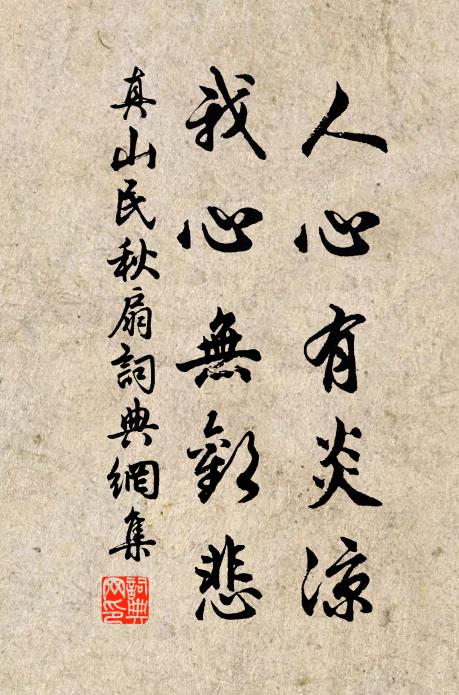 人心有炎涼
我心無歡悲
真山民秋扇詞典網集
詞典
网印